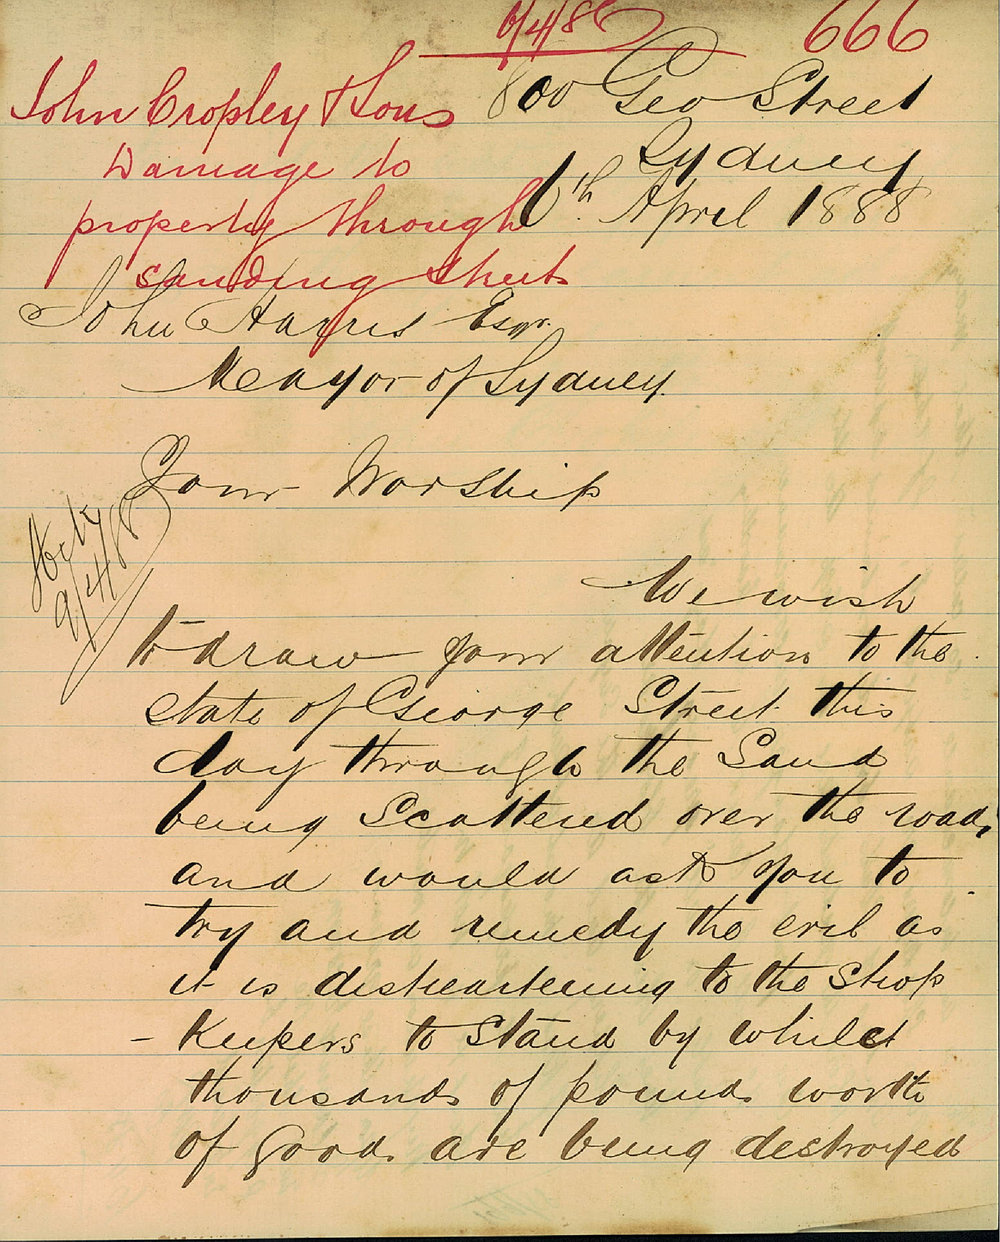 6/4/88
666
John Cropley & Sons
Damage to
property through
sanding street
800 Geo Street
Sydney
6th. April 1888
John Harris Esqr.
Mayor of Sydney.
Your Worship
9/4/88
We wish
to draw your attention to the
state of George Street this
day through the Sand
being Scattered over the road,
and would ask you to
try and remedy the evil as
it is disheartening to the Shop
- Keepers to Stand by whilst
thousands of pounds worth
of goods are being destroyed